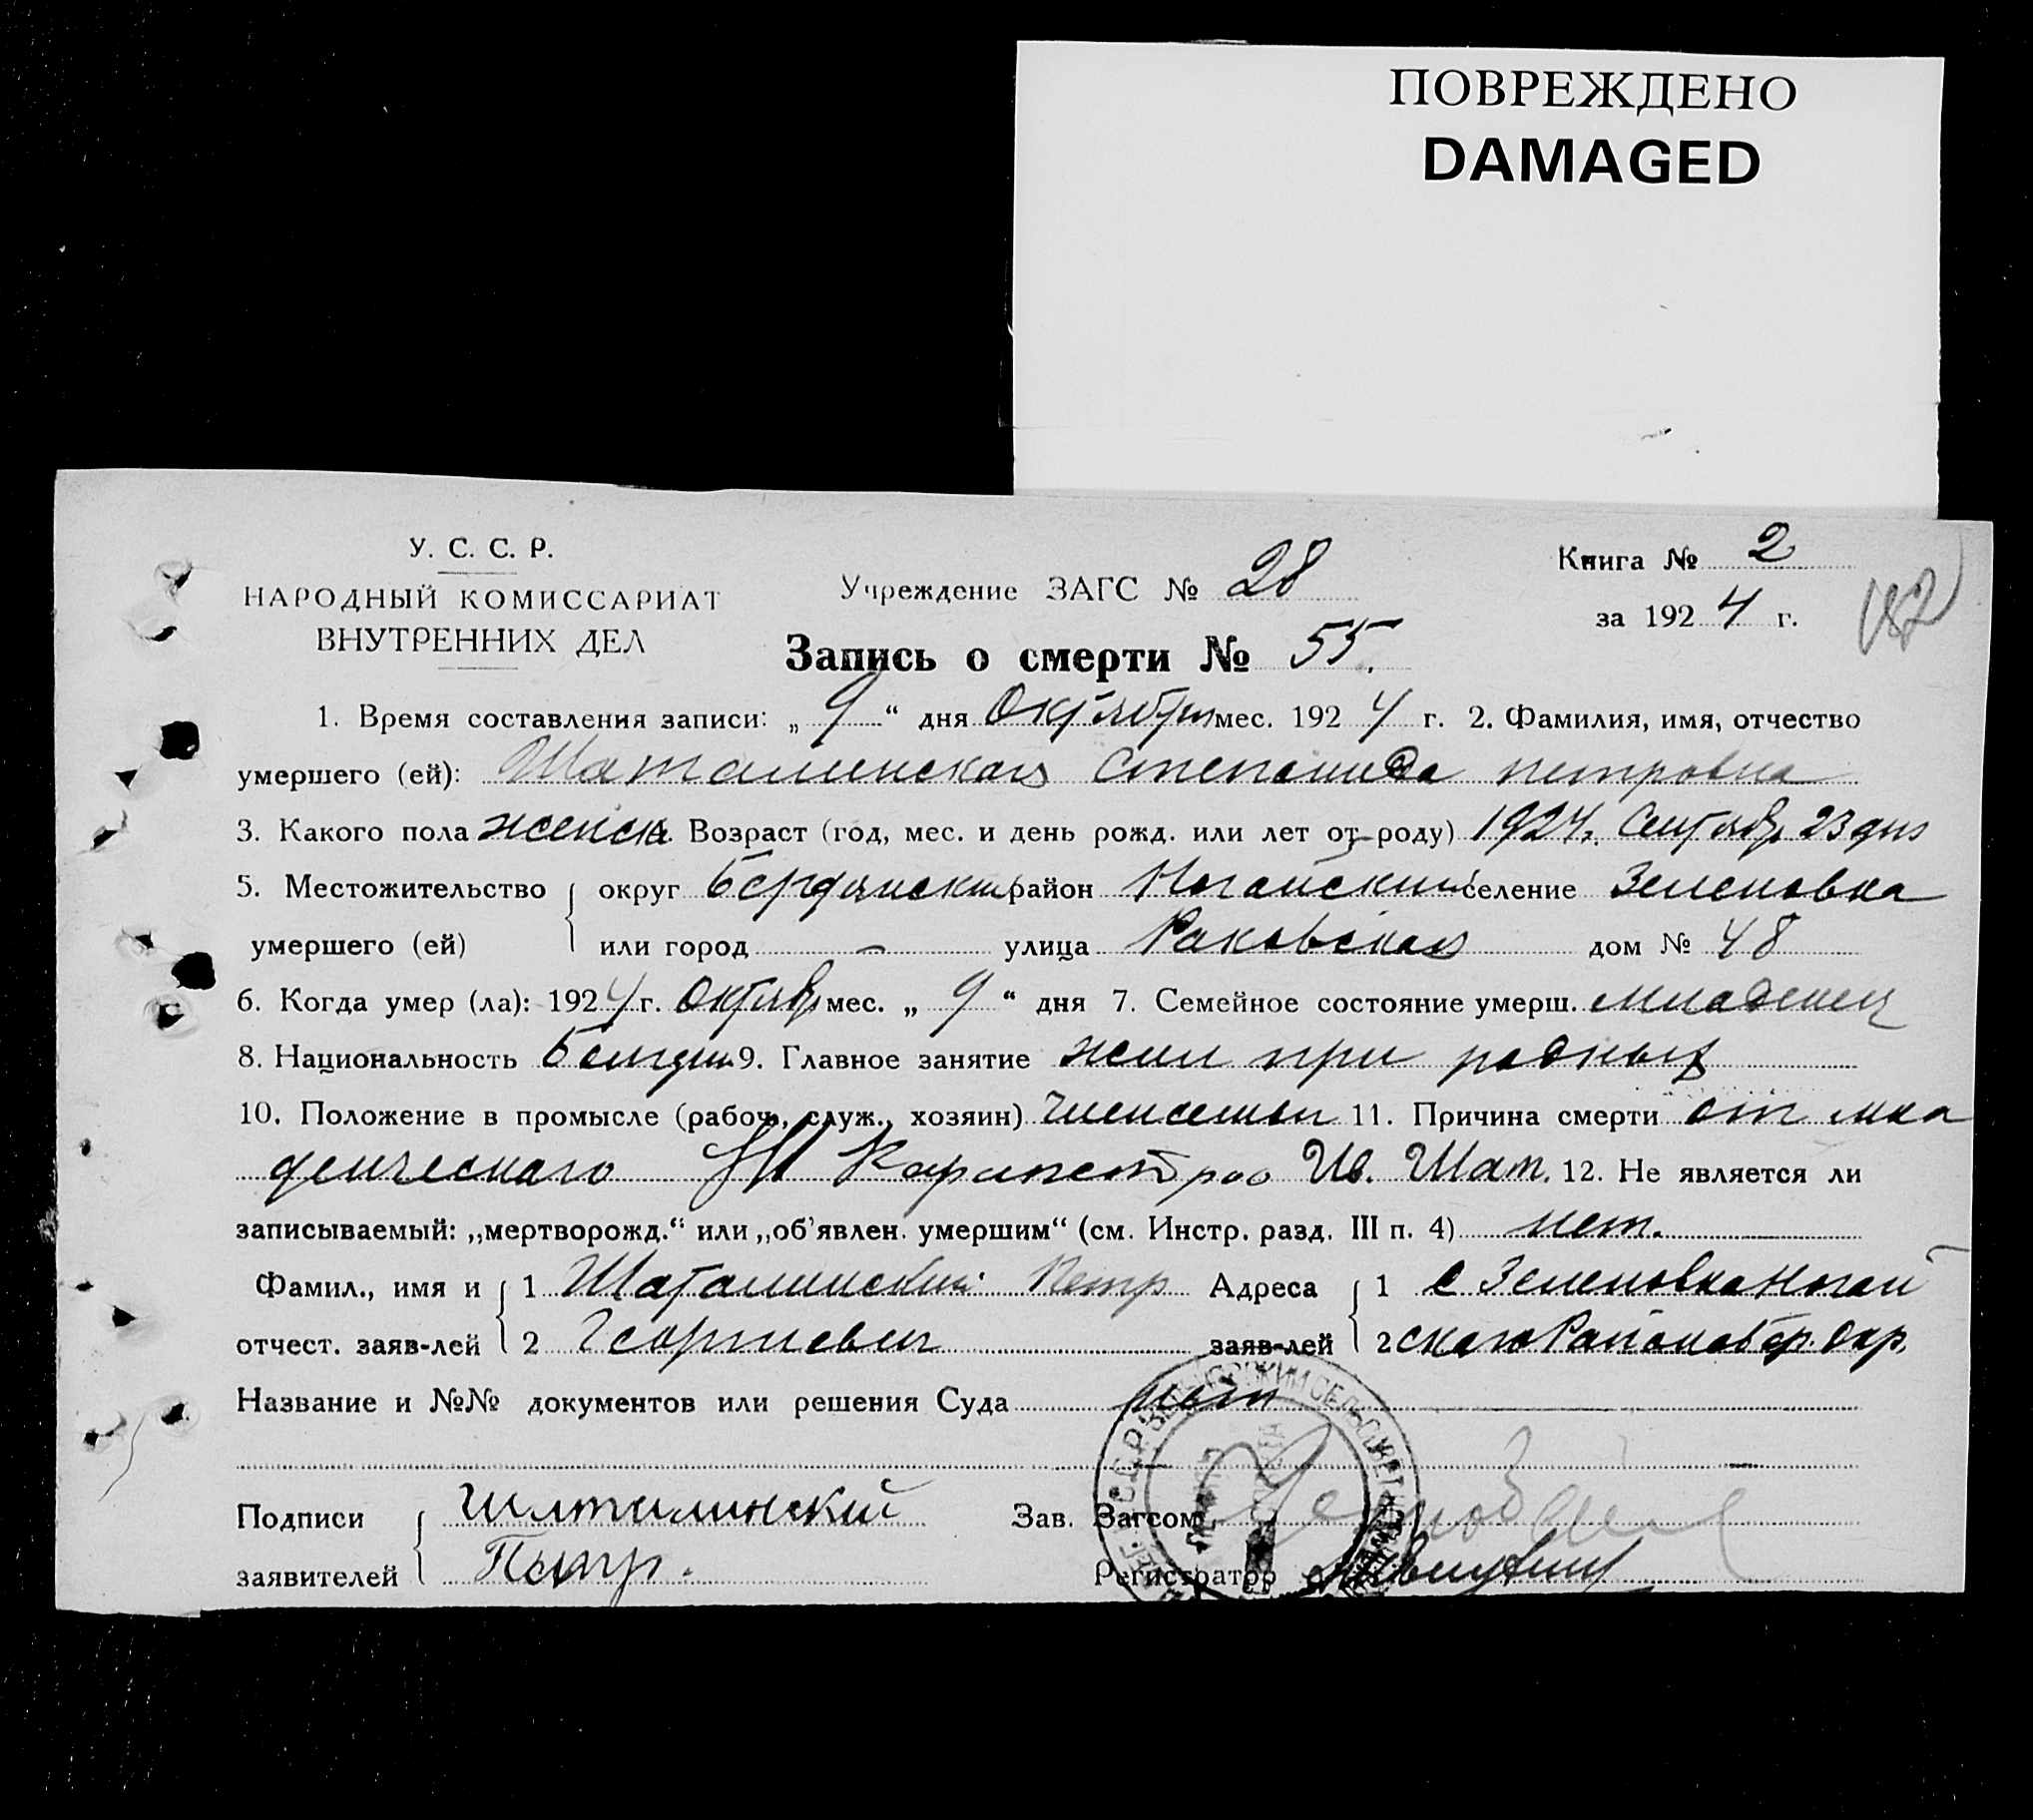 ПОВРЕЖДЕНО
DAMAGED
У. С. С. Р.
НАРОДНЫЙ КОМИССАРИАТ
ВНУТРЕННИХ ДЕЛ
Учреждение ЗАГС № 28
Книга № 2
за 1924 г.
182
Запись о смерти № 55.
1. Время составления записи: „9“ дня Октября мес. 1924 г. 2. Фамилия, имя, отчество
умершего (ей): Шаталинская Степанида петровна
3. Какого пола женска Возраст (год, мес. и день рожд. или лет от роду) 1924. Сентябр 23 дня
5. Местожительство округ Бердянский район Ногайский селение Зеленовка
умершего (ей) или город — улица Раковская дом № 48
6. Когда умер (ла): 1924 г. Октябр мес. „9“ дня 7. Семейное состояние умерш. младенец
8. Национальность 9. Главное занятие жил при родных
10. Положение в промысле (рабоч., служ., хозяин) член семьи 11. Причина смерти от мла
денческаго Ив. Шат. 12. Не является ли
записываемый: „мертворожд.“ или „об'явлен. умершим“ (см. Инстр. разд. III п. 4) нет.
Фамил., имя и 1 Шаталинский Петр Адреса 1 с Зеленовка Ногай
отчест. заяв-лей 2 Георгиевич заяв-лей 2 скаго Района Бер. Окр.
Название и №№ документов или решения Суда нет
Подписи Шаталинский Зав. Загсом
заявителей Петр. Регистратор